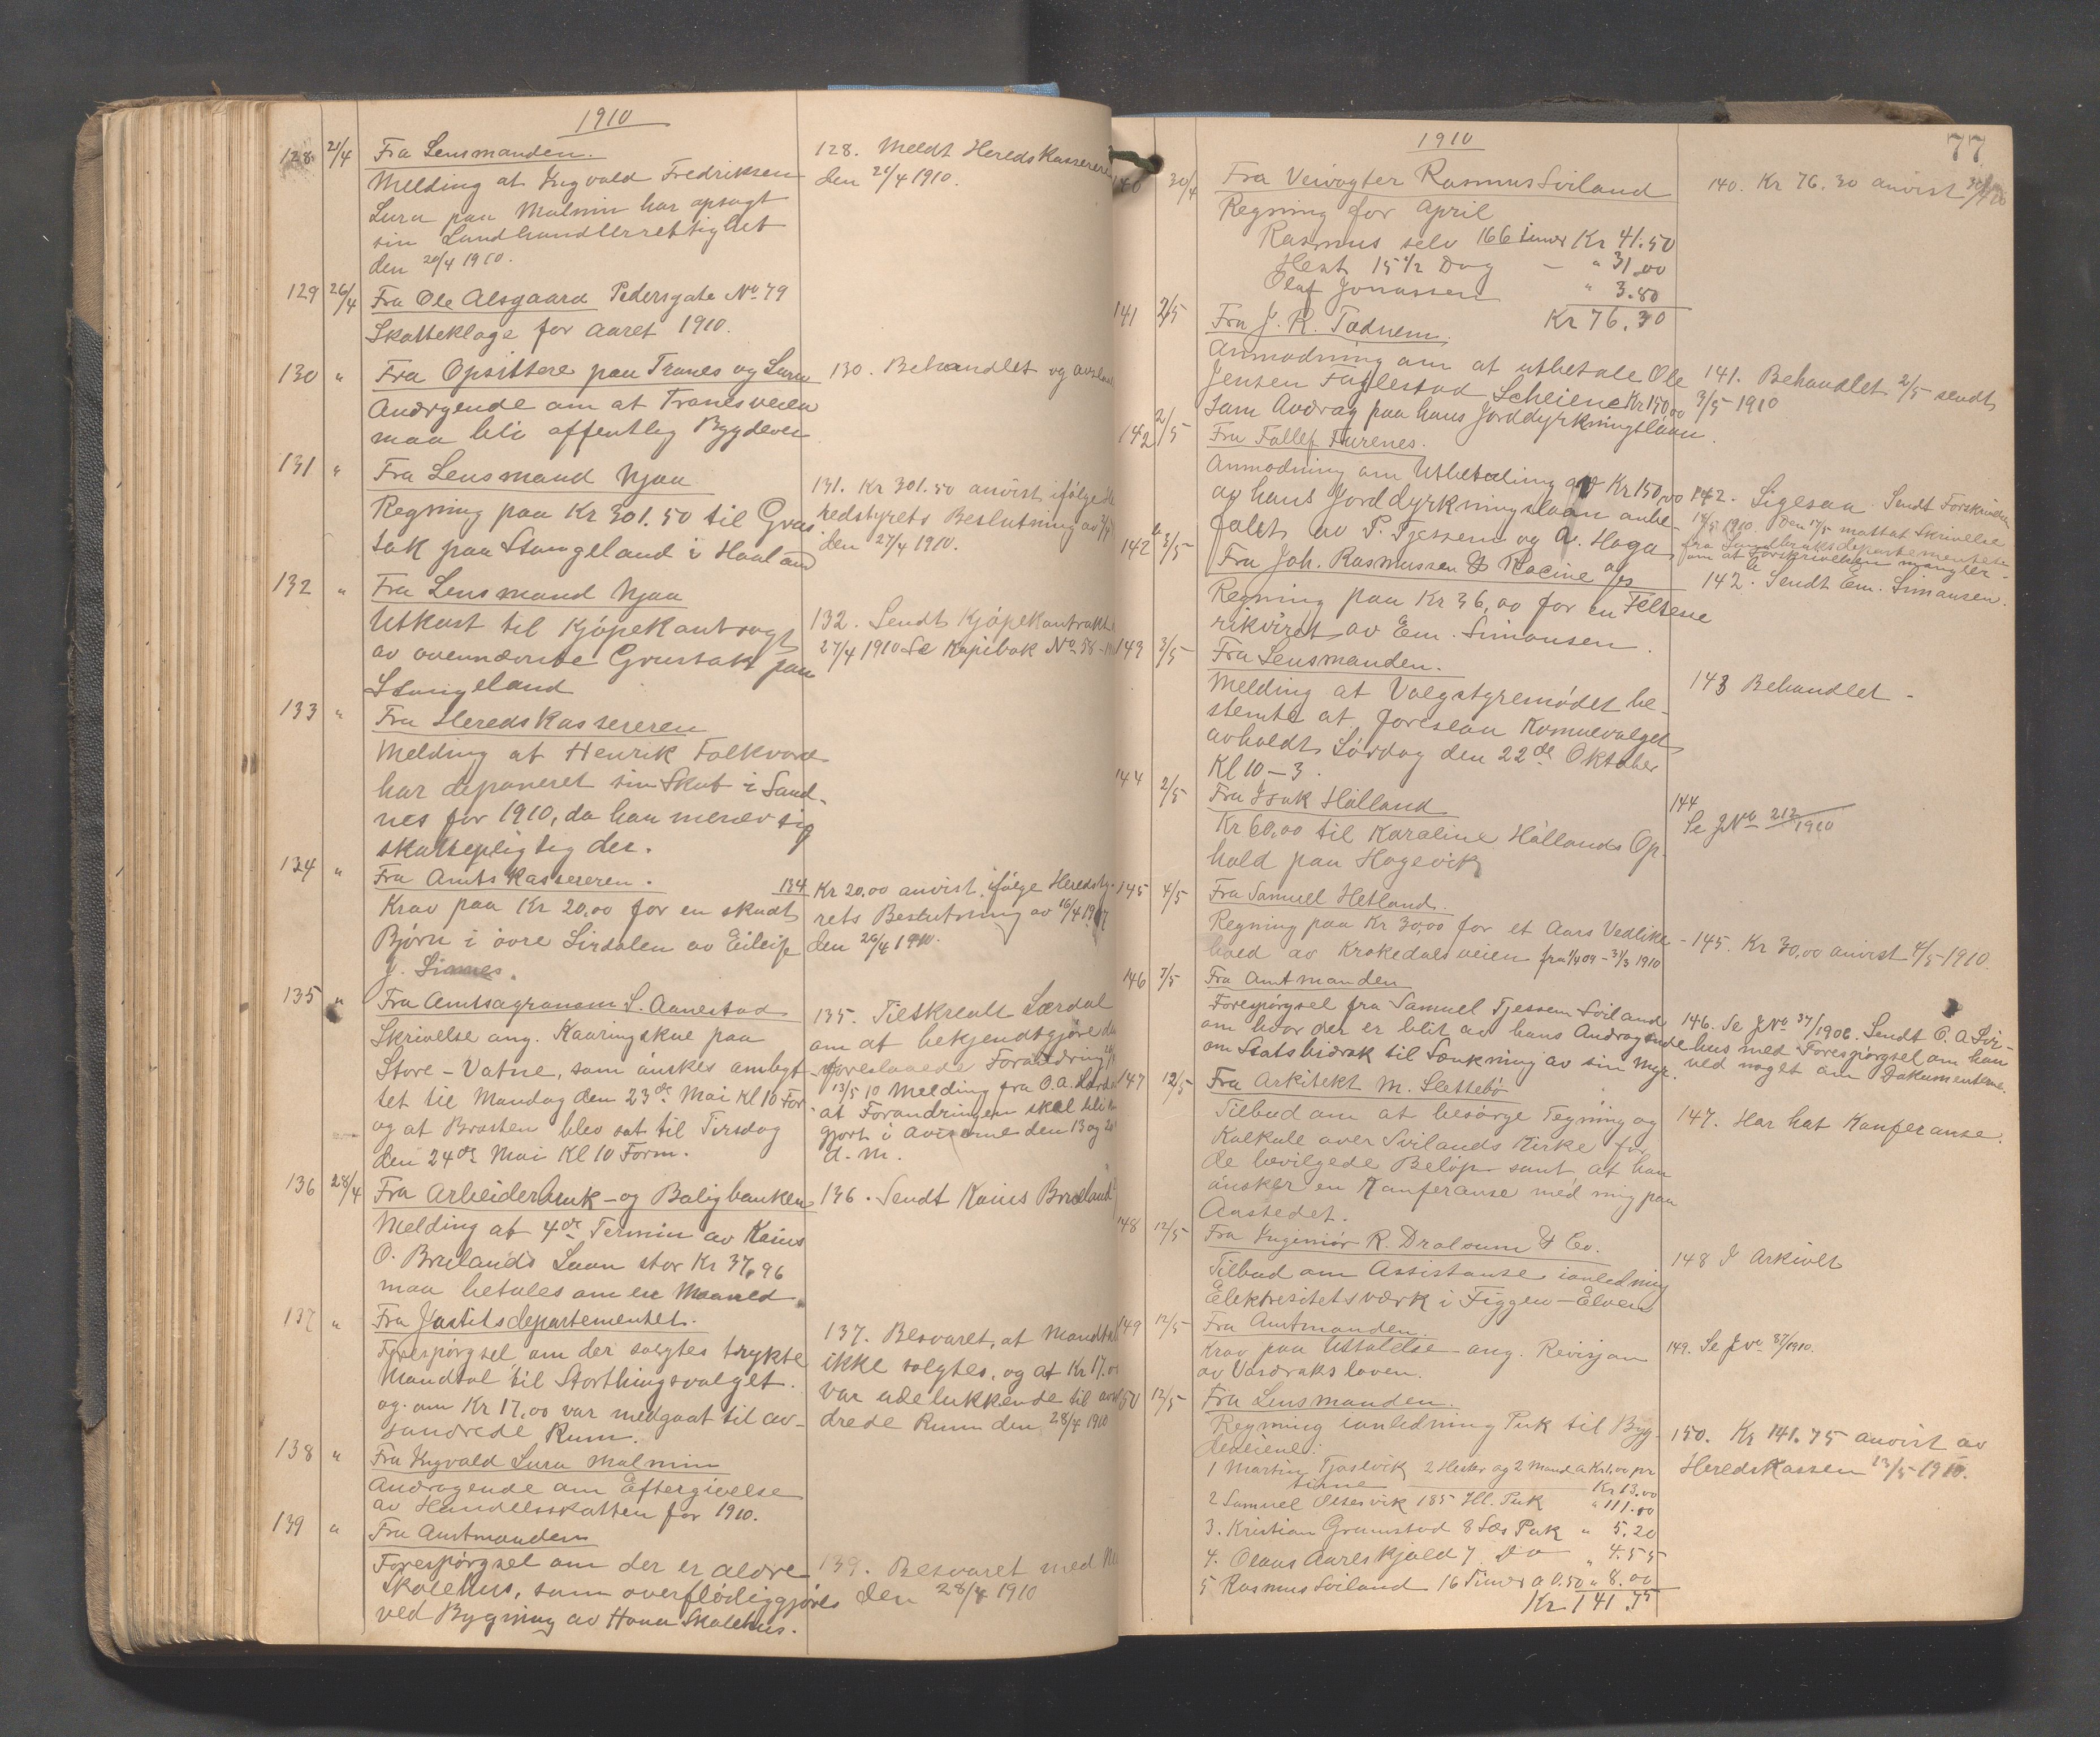 1910
128. 21/4 Fra Lensmanden.
Melding at Ingvald Fredriksen
Lura paa Malmin har opsagt
sin Landhandlerrettighet
den 20/4 1910.
128. Meldt Heredskassereren
den 21/4 1910.
129 26/4 Fra Ole Alsgaard Pedersgate No 79
Skatteklage for Aaret 1910.
130 " Fra Opsittere paa Tranes og Lura
Andrgende om at Tranesveien
maa bli offentlig Bygdevei
130. Behandlet og
131 " Fra Lensmand Njaa
Regning paa Kr 301.50 til Grus
tak paa Stangeland i Haaland
131. Kr 301.50 anvist ifølge
redstyrets Beslutning av
den 27/4 1910.
132 " Fra Lensmand Njaa
Utkast til Kjøpekontragt
av ovennævnte Grustak paa
Stangeland
132. Sendt Kjøpekontrakt
27/4 1910 Se Kopibok No 58
133 " Fra Heredskassereren
Melding at Henrik Folkvord
har deponeret sin Skat i Sand-
nes for 1910, da han mener sig
skattepligtig der.
134 " Fra Amtskassereren.
Krav paa Kr 20,00 for en skudt
Bjørn i øvre Sirdalen av Eileif
J.
134 Kr 20,00 anvist ifølge Heredsty-
rets Beslutning av 16/4 1907
den 26/4 1910.
135 " Fra Amtsagronom S. Aanestad
Skrivelse ang. Kaaringskue paa
Store-Vatne, som ønskes ombyt-
tet til Mandag den 23de Mai Kl 10 For
og at Brasten blev sat til Tirsdag
den 24de Mai Kl 10 Form.
135. Tilskrevet Lærdal
om at bekjendtgjøre
foreslaaede Forandring
13/5 10 Melding fra O. A. Lærdal
at Forandringen skal bli
gjort i Aviserne den 13 og 20
d. m.
136 28/4 Fra Arbeiderbruk- og Boligbanken
Melding at 4de Termin av Kaius
O. Brulands Laan stor Kr 37,96
maa betales om en Maaned.
136. Sendt Kaius Bruland
137 " Fra Justitsdepartementet.
Forespørgsel om der solgtes trykte
Mandtal til Storthingsvalget.
og om Kr 17,00 var medgaat til av-
sondrede Rum.
137. Besvaret, at Mandtal
ikke solgtes, og at Kr 17.00
var udelukkende til avson
drede Rum den 28/4 1910
138 " Fra Ingvald Lura Malmin
Andragende om Eftergivelse
av Handelsskatten for 1910.
139 " Fra Amtmanden
Forespørgsel om der er ældre
Skolehus, som overflødiggjøres
ved Bygning av Hana Skolehus.
139. Besvaret med
den 28/4 1910
77
1910
140 30/4 Fra Veivogter Rasmus Sviland
Regning for April
Rasmus selv 166 timer Kr 41.50
Hest 15 1/2 Dag — " 31,00
Olaf Jonassen " 3.80
Kr 76.30
140. Kr 76.30 anvist
141 2/5 Fra J. R. Tadnem.
Anmodning om at utbetale Ole
Jensen Faglestad Scheiene Kr 150,00
som Avdrag paa hans Jorddyrkningslaan.
141. Behandlet 2/5 sendt
3/5 1910
142 2/5 Fra Tollef Furenes.
Anmodning om Utbetaling av Kr 150,00
av hans Jorddyrkningslaan anbe-
falet av P. Tjessem og A. Hoga
142. Ligesaa. Sendt
1910 den 17/5 mottat Skrivelse
fra Landbruksdepartementet
om at Forskrivelsen mangler.
142 b 3/5 Fra Joh. Rasmussen & Racine A/S
Regning paa Kr 36,00 for en Feltesse
rikvirert av Em. Simonsen.
142 b. Sendt Em. Simonsen.
143 3/5 Fra Lensmanden.
Melding at Valgstyremødet be-
stemte at foreslaa Komunevalget
avholdt Lørdag den 22de Oktober
Kl 10–3.
143 Behandlet -
144 2/5 Fra Isak Hålland
Kr 60,00 til Karaline Hållands Op-
hold paa Hogevik
144
Se J No 212/1910
145 4/5 Fra Samuel Hetland.
Regning paa Kr 30,00 for et Aars Vedlike-
hold av Krokedalsveien fra 1/4 09 - 31/3 1910
145. Kr 30,00 anvist 4/5 1910.
146 7/5 Fra Amtmanden
Forespørgsel fra Samuel Tjessem Sviland
om hvor der er blit av hans Andragende
om Statsbidrak til Sænkning av sin Myr.
146. Se J No 37/1906. Sendt O. A. Svi-
hus med Forespørgsel om han
ved noget om Dokumenterne.
147 12/5 Fra Arkitekt M. Slettebø
Tilbud om at besørge Tegning og
Kalkule over Svilands Kirke for
de bevilgede Beløp samt at han
ønsker en Konferanse med mig paa
Aastedet.
147. Har hat Konferanse.
148 12/5 Fra Ingeniør R. Dralsum & Co.
Tilbud om Assistanse ianledning
Elektresitetsværk i Figgen-Elven
148 I Arkivet
149 12/5 Fra Amtmanden.
Krav paa Uttalelse ang. Revisjon
av Vasdraksloven.
149. Se J No 87/1910.
150 12/5 Fra Lensmanden.
Regning ianledning Puk til Byg-
deveiene:
1 Martin Tjaslvik 2 Hester og 2 Mand a Kr 1,00 pr
time Kr 13.00
2 Samuel Oltesvik 185 Hl. Puk " 111.00
3. Kristian Grunnstad 8 Læs Puk " 5.20
4. Olaus Aareskjold 7 Do " 4.55
5 Rasmus Sviland 16 Timer a 0.50 " 8.00
Kr 141.75
150. Kr 141.75 anvist av
Heredskassen 13/5 1910.